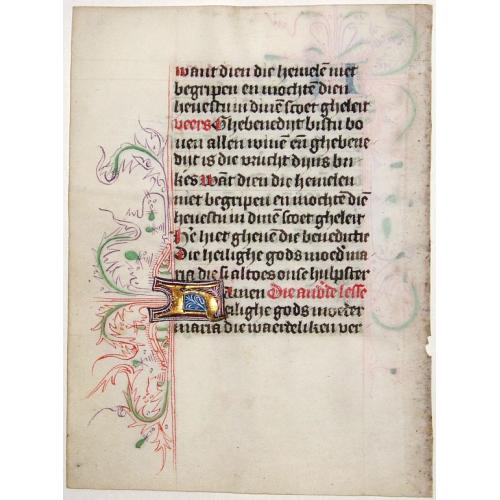 want dien die hemelē niet
begripen en mochtē dien
heuestu in dinē scoet gheleit
veers Ghebenedijt bistu bo
uen allen wiuē eñ ghebene
dijt is die vrucht dijns bu
kes Wāt dien die hemelen
niet begripen en mochtē diē
heuestu in dinē scoet gheleit
Hc hier gheuē die benedictie
Die heilighe gods moed' ma
ria die si altoes onse hulpster
Amen Die ander lesse
Heilighe gods moeder
maria die waerdeliken ver